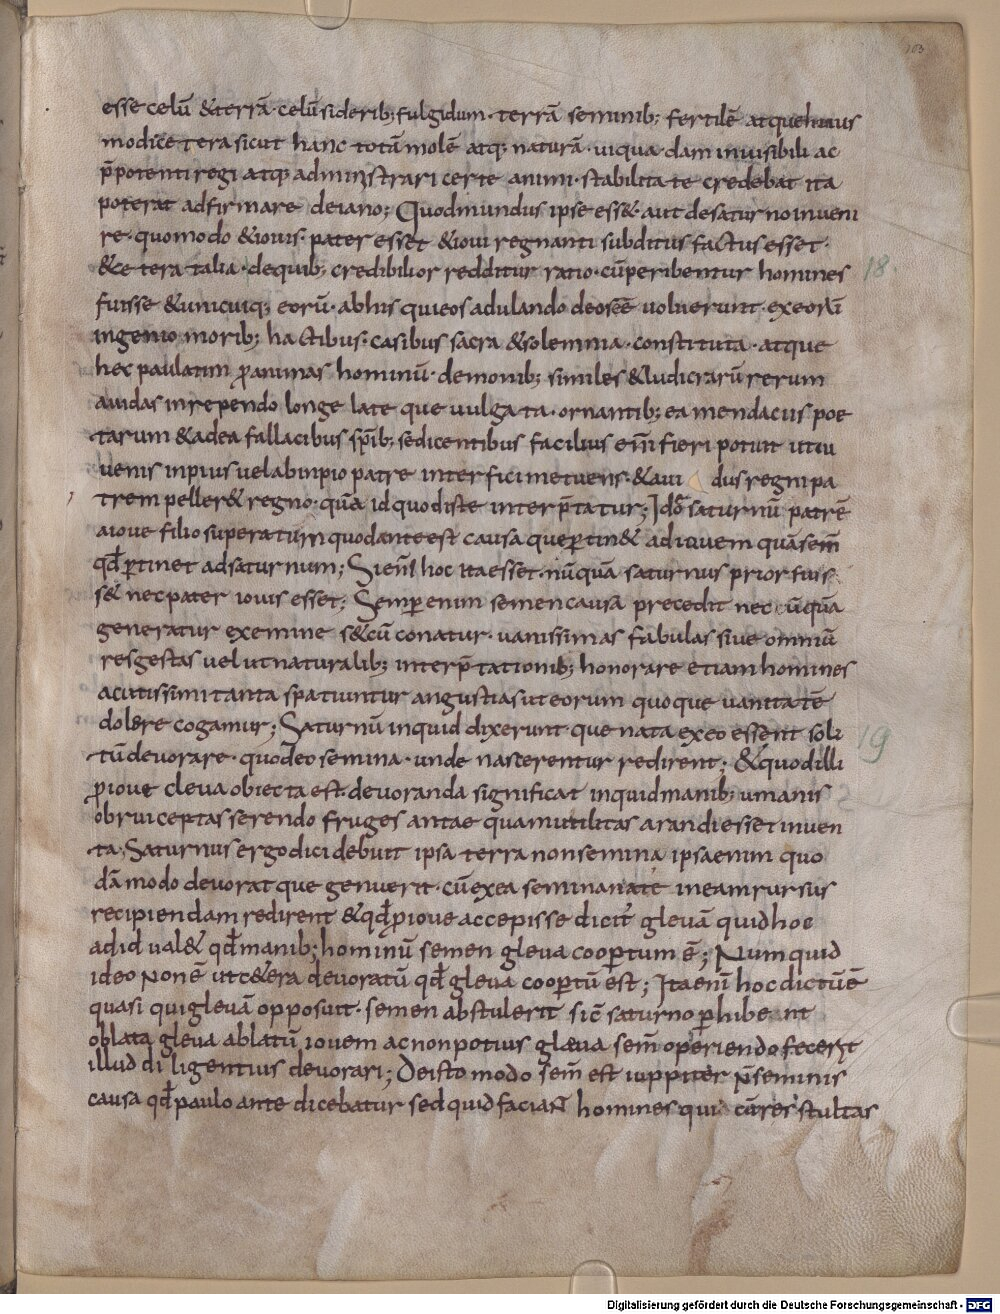 103
esse celū &terrā· celū siderib; fulgidum· terrā seminib; fertilē atque huius
modi cetera sicut hanc totā molē atq; naturā· ui qua dam inuisibili ac
p̄potenti regi atq; administrari certe animi· stabilitate credebat ita
poterat adfirmare de iano; Quod mundus ipse ess& aut de saturno inueni
re· quomodo &iouis· pater esset &ioui regnanti subditus factus esset·
&cetera talia· de quib; credibilior redditur ratio· cū peribentur homines
18·
fuisse &unicuiq; eorū· ab his qui eos adulando deos eē uoluerunt· ex eorū
ingenio morib; hactibus· casibus sacra &solemnia· constituta· atque
hec paulatim p̱ animas hominū· demonib; similes &ludicrarū rerum
auidas inrependo longe late que uulgata· ornantib; ea mendaciis poe
tarum &ad ea fallacibus sp̄ib; sedicentibus facilius enī fieri potuit ut iu
uenis inpius uel ab inpio patre interfici metuens· &aui dus regni pa
trem peller& regno· quā id quod iste interp̄tatur; Idō saturnū patrē
a ioue filio superatum quod ante est causa que ꝑtin& ad iouem quā sem̄
qđ ꝑtinet ad saturnum; Si enī hoc ita esset· nūquā saturnus prior fuis
s& nec pater iouis esset; Semꝑ enim semen causā precedit nec ūquā
generatur ex emine s& cū conatur· uanissimas fabulas siue ominū
res gestas uelut naturalib; interp̄tationib; honorare etiam homines
acutissimi tanta spatiuntur angustias ut eorum quoque uanitatē
dolere cogamur; Saturnū inquid dixerunt que nata ex eo essent soli
19
tū deuorare· quod eo semina· unde nascerentur redirent; &quod illi
p̱ ioue cleua obiecta est deuoranda significat inquid manib; umanis
obrui ceptas serendo fruges antae quam utilitas arandi esset inuen
ta· Saturnus ergo dici debuit ipsa terra non semina ipsa enim quo
dā modo deuorat que genuerit· cū ex ea semina nate in eam rursus
recipiendam redirent &qđ p̱ ioue accepisse dicit̄ gleuā quid hoc
ad id ual& qđ manib; hominū semen gleua cooꝑtum ē; Num quid
ideo non ē ut c&era deuoratū qđ gleua cooꝑtū est; Ita enī hoc dictū ē
quasi qui gleuā opposuit· semen abstulerit sic̄ saturno ꝑhibe nt
oblata gleua ablatū iouem ac non potius gleua sem̄ operiendo fecerit
illud diligentius deuorari; De isto modo sem̄ est iuppiter n̄ seminis
causa qđ paulo ante dicebatur sed quid faciant homines qui cū res stultas
Digitalisierung gefördert durch die Deutsche Forschungsgemeinschaft - DFG